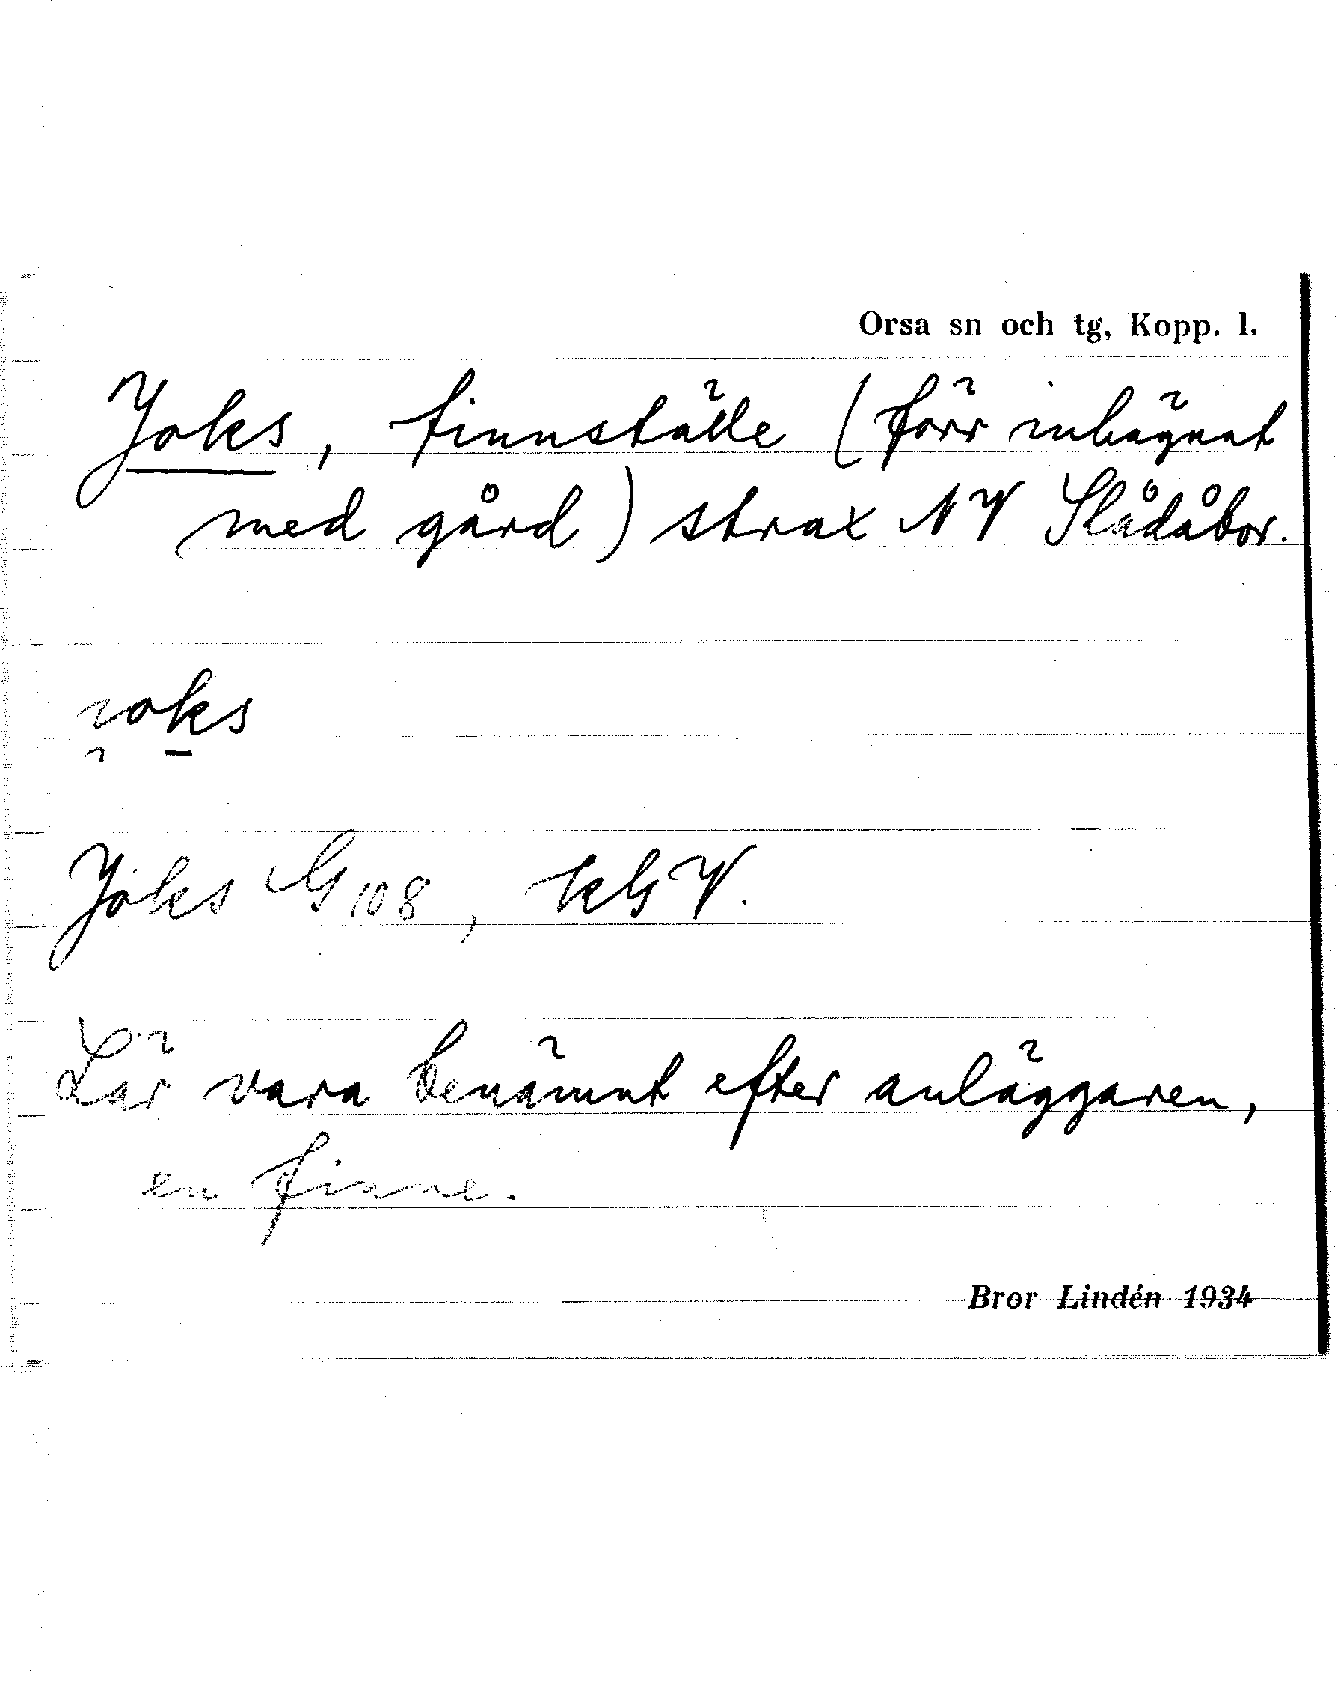 Orsa sn och tg, Kopp. l.
Joks, finnställe (förr inhägnat
med gård) strax NV Slådåbor.
Joks G 108, kGV.
Lär vara benämnt efter anläggaren,
en finne.
Bror Lindén 1934